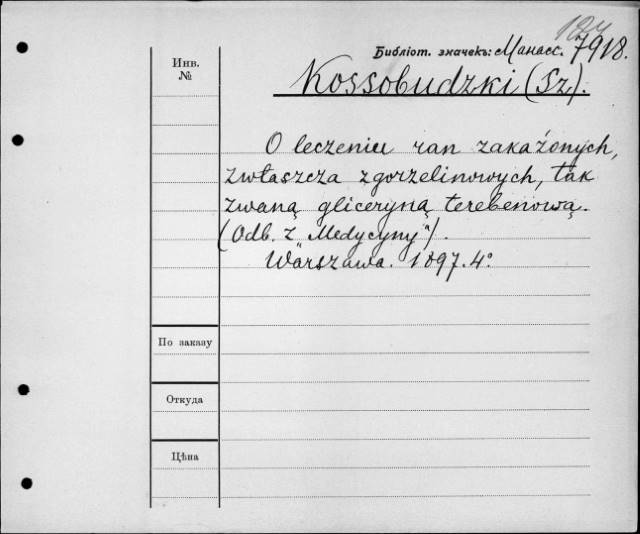 Библіот. значекъ: Манасс. 7918.
Инв.
№
Kossobudzki (Sz).
O leczeniu ran zakażonych,
zwłaszcza zgorzelinowych, tak
zwaną gliceryną terebenową.
(Odb. z „Medycyny").
Warszawa. 1897. 4°
По заказу
Откуда
Цѣна